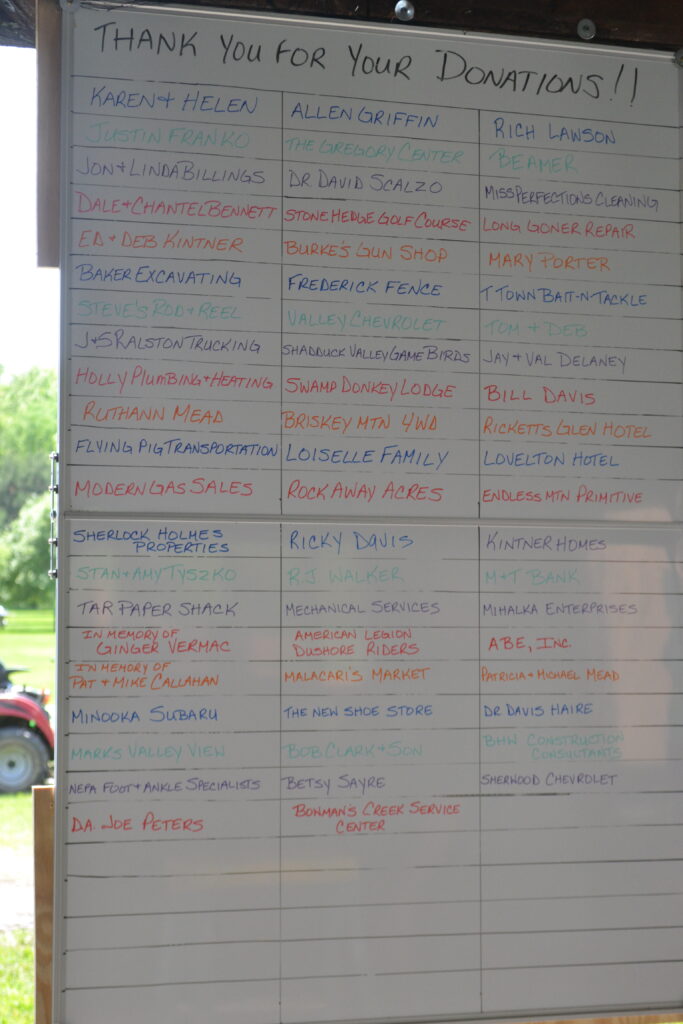 THANK YOU FOR YOUR DONATIONS!!
KAREN + HELEN
ALLEN GRIFFIN
RICH LAWSON
JUSTIN FRANKO
THE GREGORY CENTER
BEAMER
JON + LINDA BILLINGS
DR. DAVID SCALZO
MISS PERFECTIONS CLEANING
DALE + CHANTEL BENNETT
STONE HEDGE GOLF COURSE
LONG GONER REPAIR
ED + DEB KINTNER
BURKE'S GUN SHOP
MARY PORTER
BAKER EXCAVATING
FREDERICK FENCE
T TOWN BAIT-N-TACKLE
STEVE'S ROD + REEL
VALLEY CHEVROLET
TOM + DEB
J+S RALSTON TRUCKING
SHADDUCK VALLEY GAME BIRDS
JAY + VAL DELANEY
HOLLY PLUMBING + HEATING
SWAMP DONKEY LODGE
BILL DAVIS
RUTHANN MEAD
BRISKEY MTN 4WD
RICKETTS GLEN HOTEL
FLYING PIG TRANSPORTATION
LOISELLE FAMILY
LOVELTON HOTEL
MODERN GAS SALES
ROCK AWAY ACRES
ENDLESS MTN PRIMITIVE
SHERLOCK HOLMES
PROPERTIES
RICKY DAVIS
KINTNER HOMES
STAN + AMY TYSZKO
R.J. WALKER
M+T BANK
TAR PAPER SHACK
MECHANICAL SERVICES
MIHALKA ENTERPRISES
IN MEMORY OF
GINGER VERMAC
AMERICAN LEGION
DUSHORE RIDERS
ABE, INC.
IN MEMORY OF
PAT + MIKE CALLAHAN
MALACARI'S MARKET
PATRICIA + MICHAEL MEAD
MINOOKA SUBARU
THE NEW SHOE STORE
DR DAVIS HAIRE
MARKS VALLEY VIEW
BOB CLARK + SON
BHW CONSTRUCTION
CONSULTANTS
NEPA FOOT + ANKLE SPECIALISTS
BETSY SAYRE
SHERWOOD CHEVROLET
DA. JOE PETERS
BOWMAN'S CREEK SERVICE
CENTER